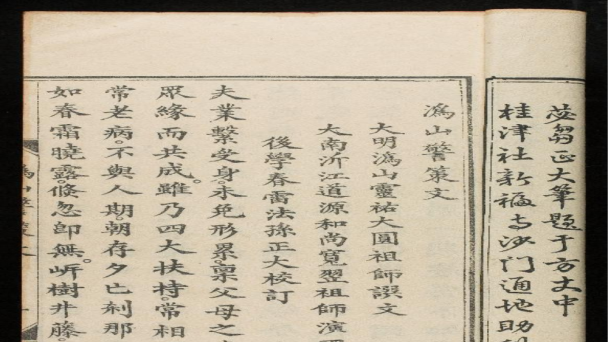 苾芻正大筆題于方丈中
桂津社新福寺沙門通地助
溈山警策文
大明溈山靈祐大圓祖師譔文
大南沂江道源和尚寬翌祖師演
後學春雷法孫正大校訂
夫業繫受身未免形累。稟父母之
眾緣而共成。雖乃四大扶持。常相
常老病。不與人期。朝存夕亡剎那
如春霜曉露倏忽即無。岍樹井藤。